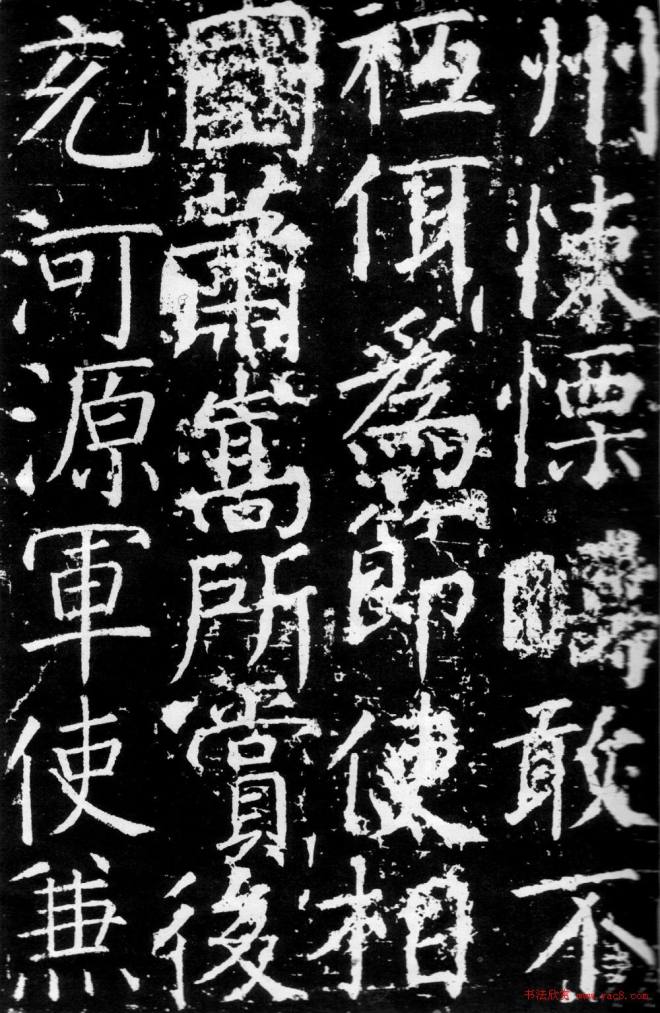 州悚慄疇敢不
祗為節使相
國蕭嵩所賞後
充河源軍使兼
书法欣赏 www.yac8.com